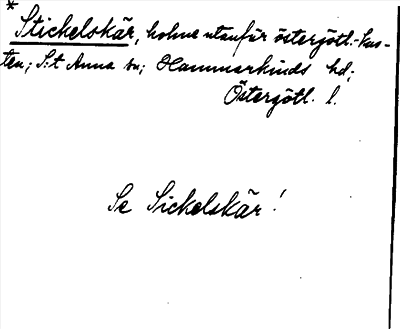 * Stickelskär, holme utanför östergötl.-kus-
ten; S:t Anna sn; Hammarkinds hd;
Östergötl. l.
Se Sickelskär!